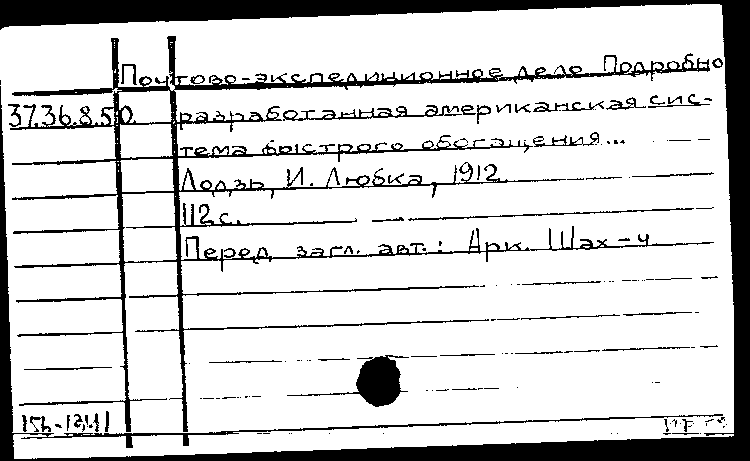 Почтово-экспедиционное дело Подробно
37.36.8.50 разработанная американская сис-
тема быстрого обогащения...
Лодзь, И. Любка, 1912
112 с.
Перед загл. авт.: Арк. Шах-ч